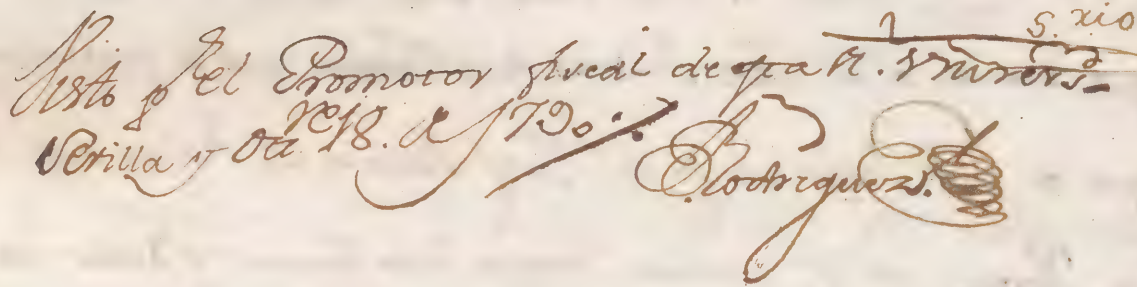 S.rio
Visto pr el Promotor fiscal de esta Rl. Vnivers.d
Sevilla y Octre 18. de 1790.
Rodriguez.